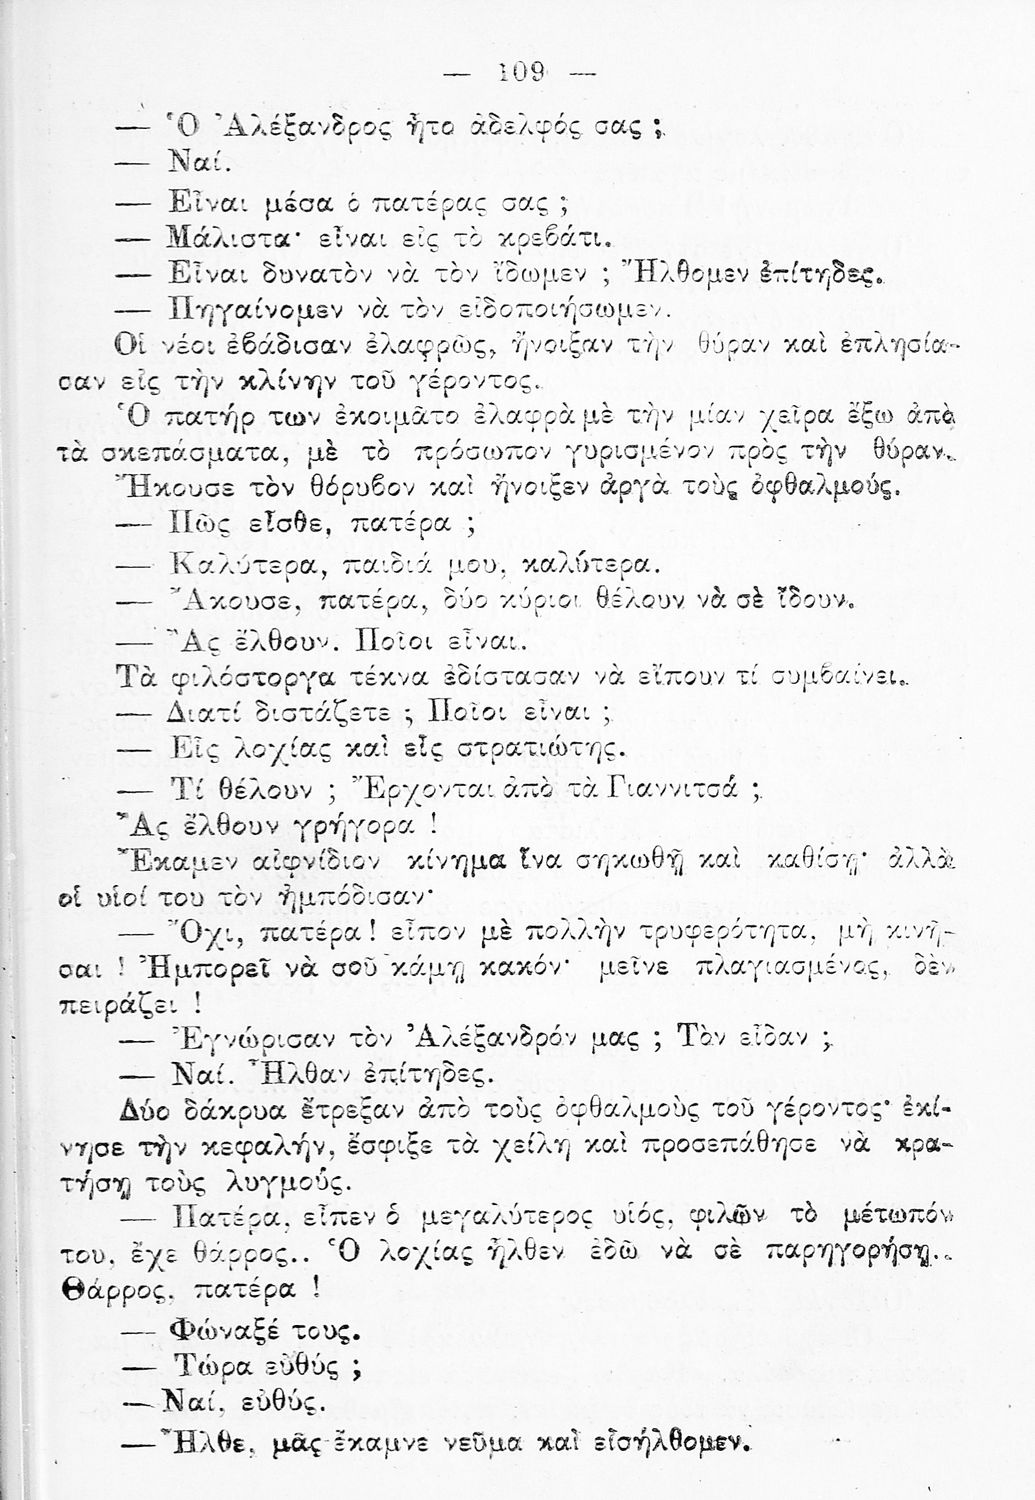 — 109 —
— Ὁ Ἀλέξανδρος ἦτο ἀδελφός σας ;
— Ναί.
— Εἶναι μέσα ὁ πατέρας σας ;
— Μάλιστα· εἶναι εἰς τὸ κρεβάτι.
— Εἶναι δυνατὸν νὰ τὸν ἴδωμεν ; Ἤλθομεν ἐπίτηδες.
— Πηγαίνομεν νὰ τὸν εἰδοποιήσωμεν.
Οἱ νέοι ἐβάδισαν ἐλαφρῶς, ἤνοιξαν τὴν θύραν καὶ ἐπλησία-
σαν εἰς τὴν κλίνην τοῦ γέροντος.
Ὁ πατήρ των ἐκοιμᾶτο ἐλαφρὰ μὲ τὴν μίαν χεῖρα ἔξω ἀπὸ
τὰ σκεπάσματα, μὲ τὸ πρόσωπον γυρισμένον πρὸς τὴν θύραν.
Ἤκουσε τὸν θόρυβον καὶ ἤνοιξεν ἀργὰ τοὺς ὀφθαλμούς.
— Πῶς εἶσθε, πατέρα ;
— Καλύτερα, παιδιά μου, καλύτερα.
— Ἄκουσε, πατέρα, δύο κύριοι θέλουν νὰ σὲ ἴδουν.
— Ἂς ἔλθουν. Ποῖοι εἶναι.
Τὰ φιλόστοργα τέκνα ἐδίστασαν νὰ εἴπουν τί συμβαίνει.
— Διατί διστάζετε ; Ποῖοι εἶναι ;
— Εἷς λοχίας καὶ εἷς στρατιώτης.
— Τί θέλουν ; Ἔρχονται ἀπὸ τὰ Γιαννιτσά ;
Ἂς ἔλθουν γρήγορα !
Ἔκαμεν αἰφνίδιον κίνημα ἵνα σηκωθῇ καὶ καθίσῃ· ἀλλὰ
οἱ υἱοί του τὸν ἠμπόδισαν·
— Ὄχι, πατέρα ! εἶπον μὲ πολλὴν τρυφερότητα, μὴ κινῆ-
σαι ! Ἠμπορεῖ νὰ σοῦ κάμῃ κακόν· μεῖνε πλαγιασμένος, δὲν
πειράζει !
— Ἐγνώρισαν τὸν Ἀλέξανδρόν μας ; Τὸν εἶδαν ;
— Ναί. Ἦλθαν ἐπίτηδες.
Δύο δάκρυα ἔτρεξαν ἀπὸ τοὺς ὀφθαλμοὺς τοῦ γέροντος· ἐκί-
νησε τὴν κεφαλήν, ἔσφιξε τὰ χείλη καὶ προσεπάθησε νὰ κρα-
τήσῃ τοὺς λυγμούς.
— Πατέρα, εἶπεν ὁ μεγαλύτερος υἱός, φιλῶν τὸ μέτωπόν
του, ἔχε θάρρος.. Ὁ λοχίας ἦλθεν ἐδῶ νὰ σὲ παρηγορήσῃ..
Θάρρος, πατέρα !
— Φώναξέ τους.
— Τώρα εὐθύς ;
— Ναί, εὐθύς.
— Ἦλθε, μᾶς ἔκαμνε νεῦμα καὶ εἰσήλθομεν.